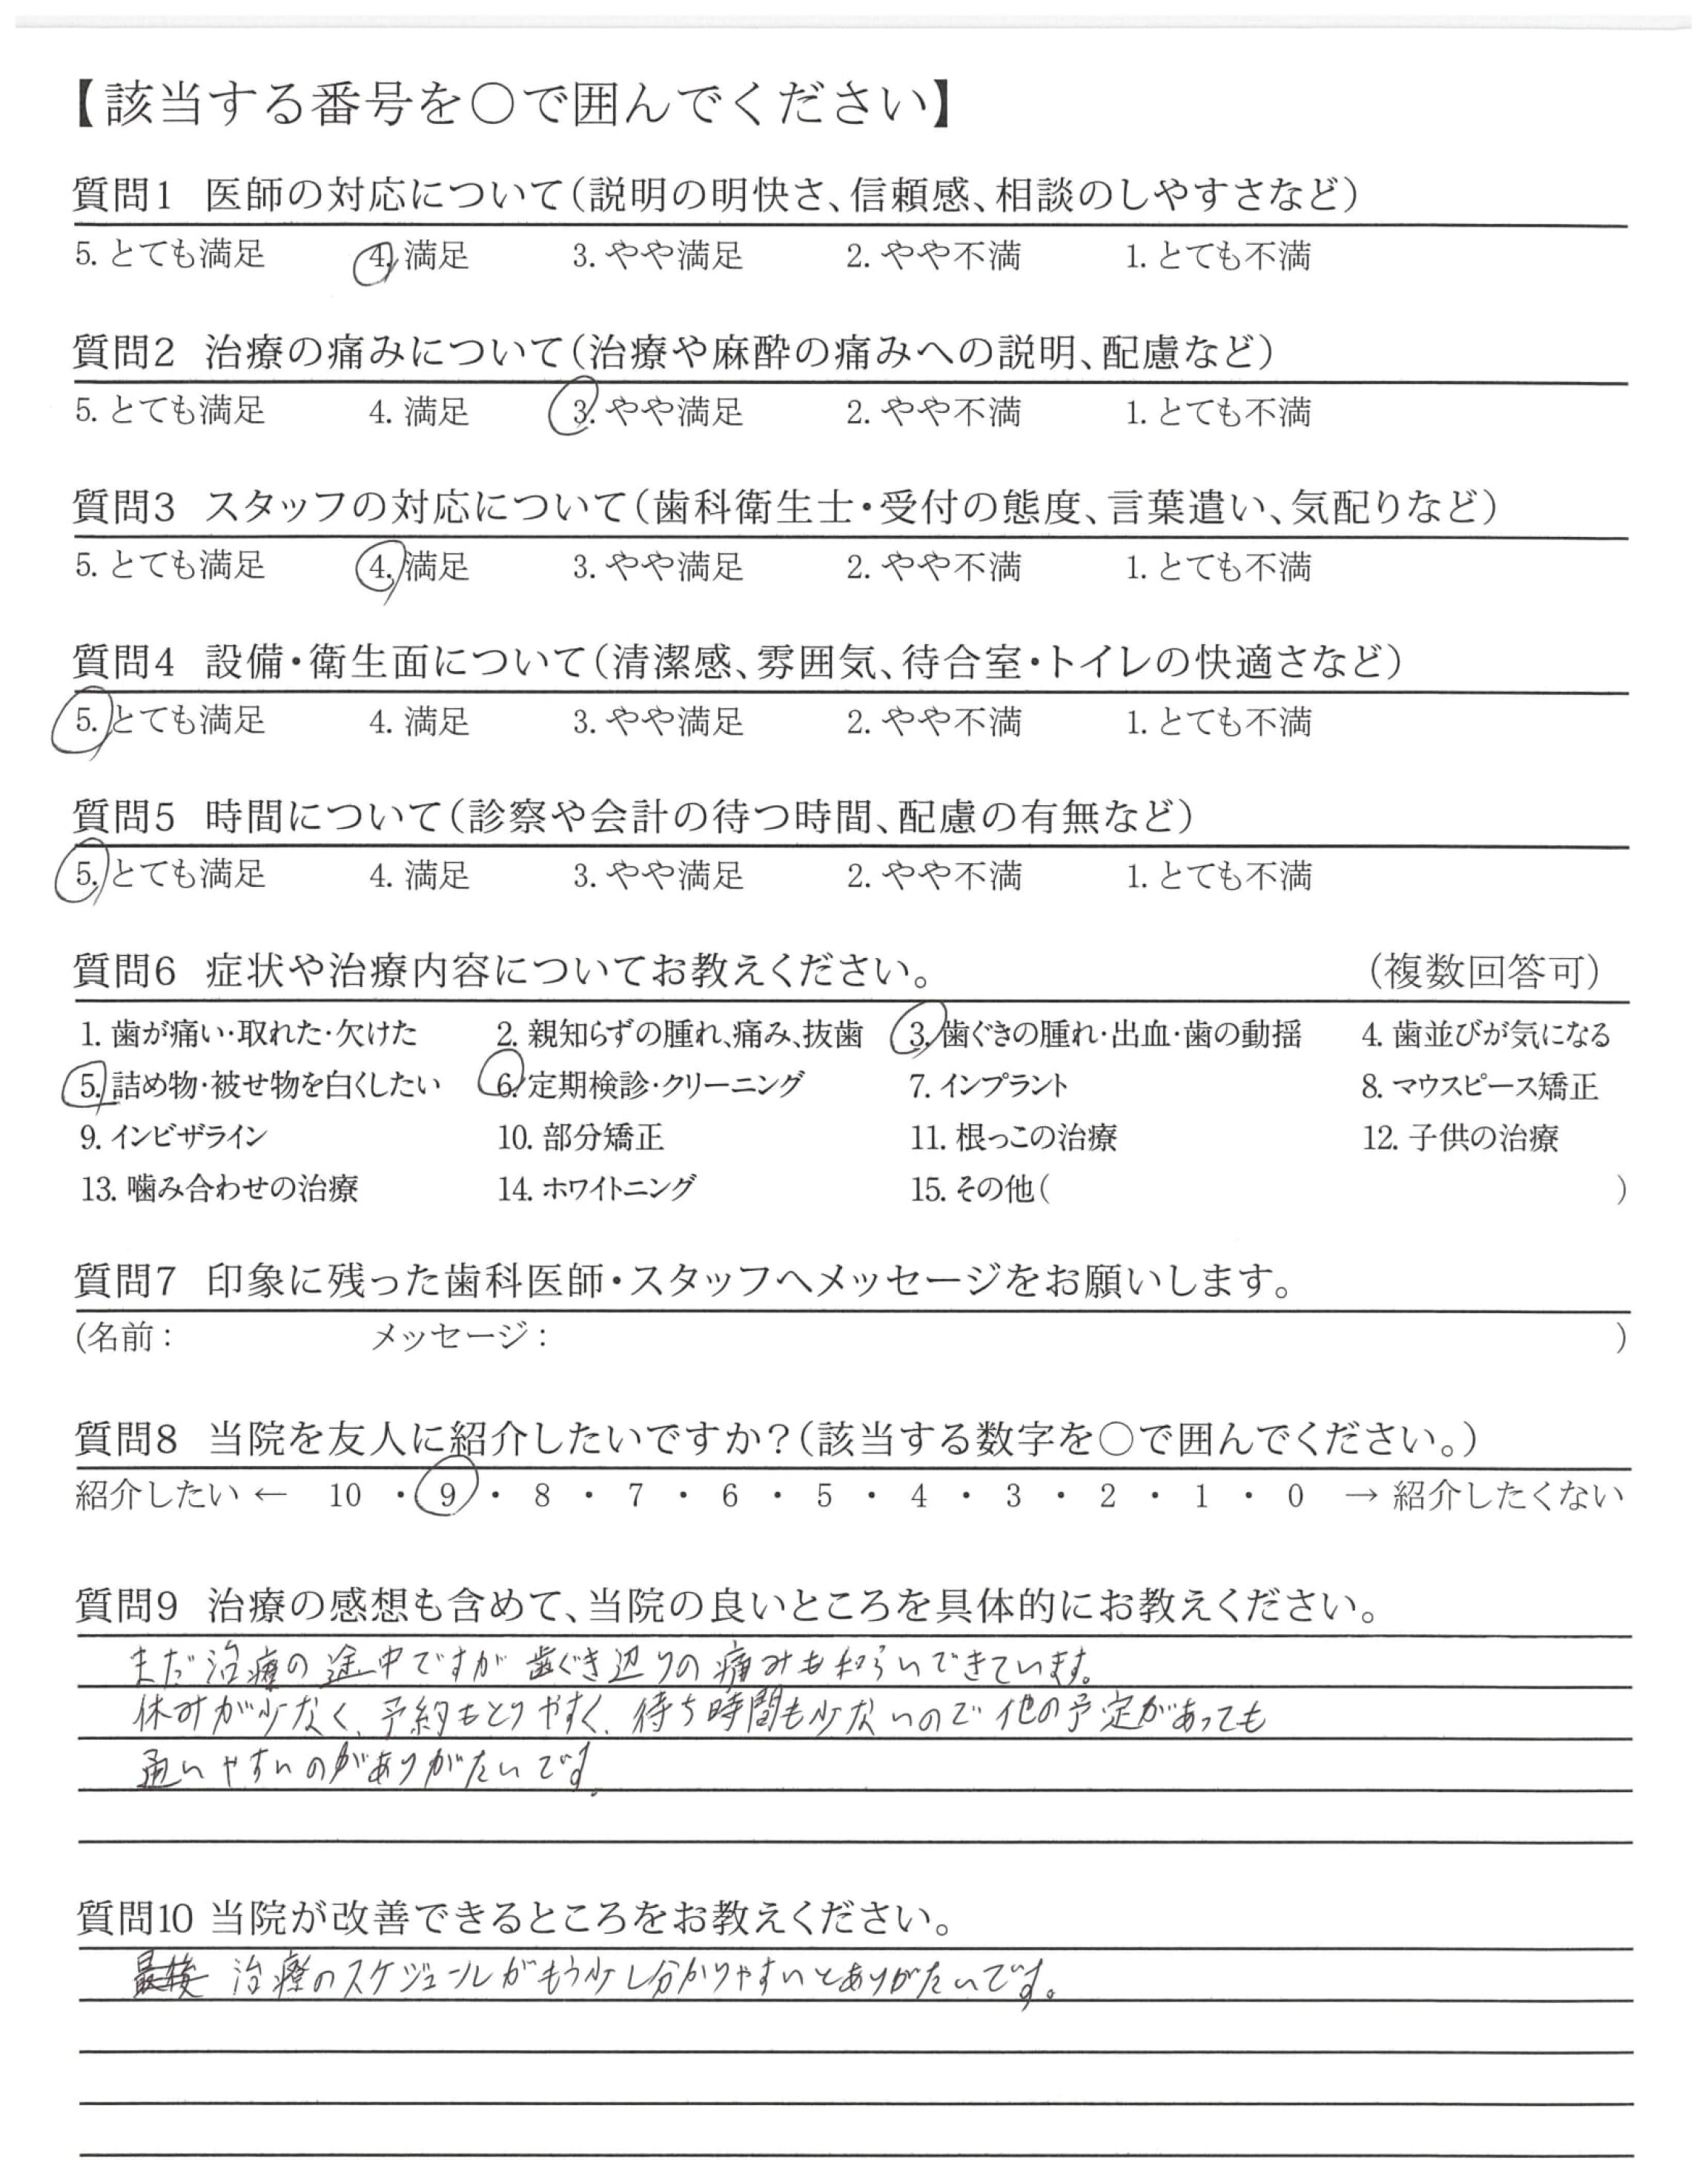 【該当する番号を○で囲んでください】
質問1 医師の対応について(説明の明快さ、信頼感、相談のしやすさなど)
5. とても満足 4. 満足 3. やや満足 2. やや不満 1. とても不満
質問2 治療の痛みについて(治療や麻酔の痛みへの説明、配慮など)
5. とても満足 4. 満足 3. やや満足 2. やや不満 1. とても不満
質問3 スタッフの対応について(歯科衛生士・受付の態度、言葉遣い、気配りなど)
5. とても満足 4. 満足 3. やや満足 2. やや不満 1. とても不満
質問4 設備・衛生面について(清潔感、雰囲気、待合室・トイレの快適さなど)
5. とても満足 4. 満足 3. やや満足 2. やや不満 1. とても不満
質問5 時間について(診察や会計の待つ時間、配慮の有無など)
5. とても満足 4. 満足 3. やや満足 2. やや不満 1. とても不満
質問6 症状や治療内容についてお教えください。 (複数回答可)
1. 歯が痛い・取れた・欠けた 2. 親知らずの腫れ、痛み、抜歯 3. 歯ぐきの腫れ・出血・歯の動揺 4. 歯並びが気になる
5. 詰め物・被せ物を白くしたい 6. 定期検診・クリーニング 7. インプラント 8. マウスピース矯正
9. インビザライン 10. 部分矯正 11. 根っこの治療 12. 子供の治療
13. 噛み合わせの治療 14. ホワイトニング 15. その他( )
質問7 印象に残った歯科医師・スタッフへメッセージをお願いします。
(名前: メッセージ: )
質問8 当院を友人に紹介したいですか?(該当する数字を○で囲んでください。)
紹介したい ← 10 ・ 9 ・ 8 ・ 7 ・ 6 ・ 5 ・ 4 ・ 3 ・ 2 ・ 1 ・ 0 → 紹介したくない
質問9 治療の感想も含めて、当院の良いところを具体的にお教えください。
まだ治療の途中ですが 歯ぐき辺りの痛みも和らいできています。
休みが少なく、予約もとりやすく、待ち時間も少ないので他の予定があっても
通いやすいのがありがたいです。
質問10 当院が改善できるところをお教えください。
最後 治療のスケジュールがもう少し分かりやすいとありがたいです。